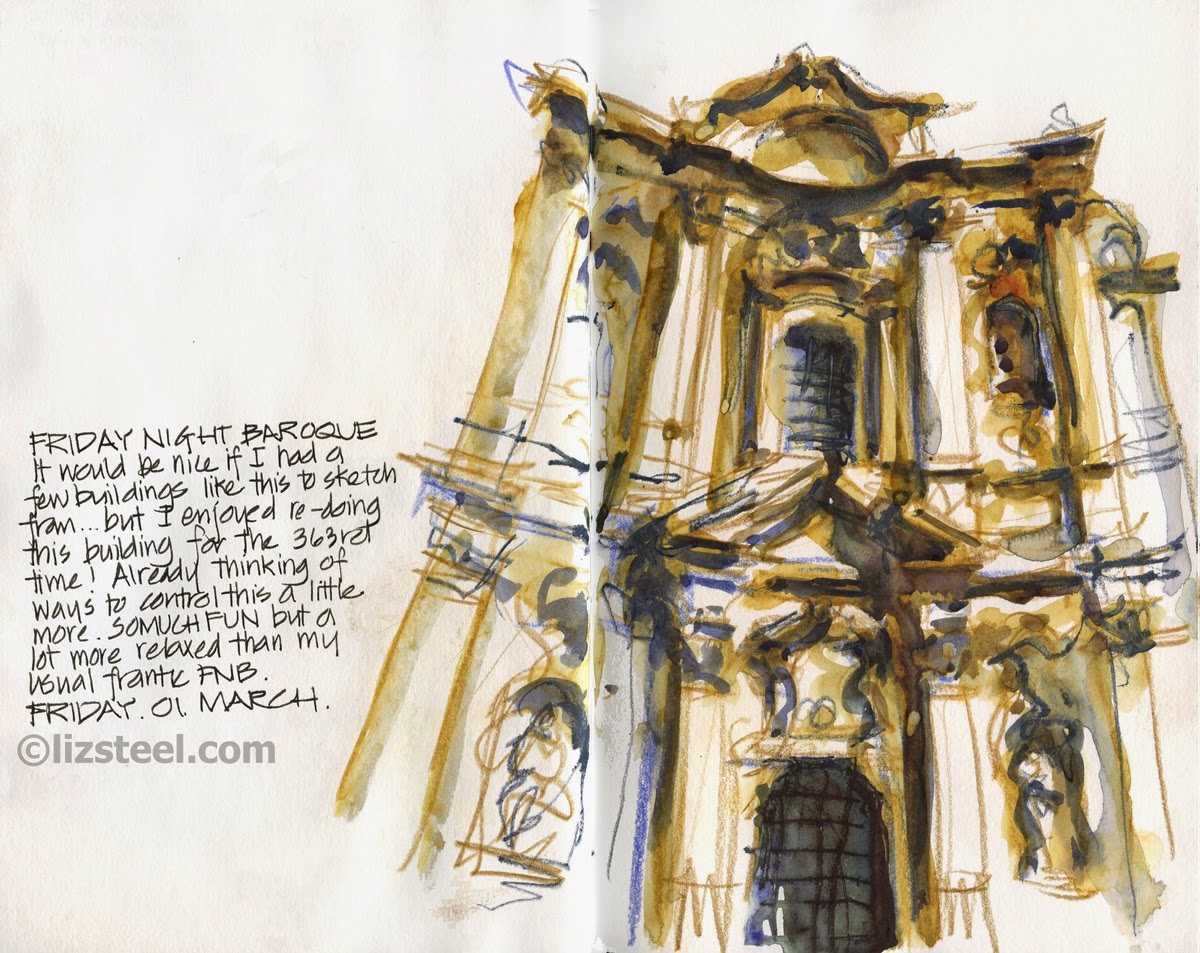 FRIDAY NIGHT BAROQUE
It would be nice if I had a
few buildings like this to sketch
from... but I enjoyed re-doing
this building for the 363rd
time! Already thinking of
ways to control this a little
more. SO MUCH FUN but a
lot more relaxed than my
usual frantic FNB.
FRIDAY. 01. MARCH.
©lizsteel.com